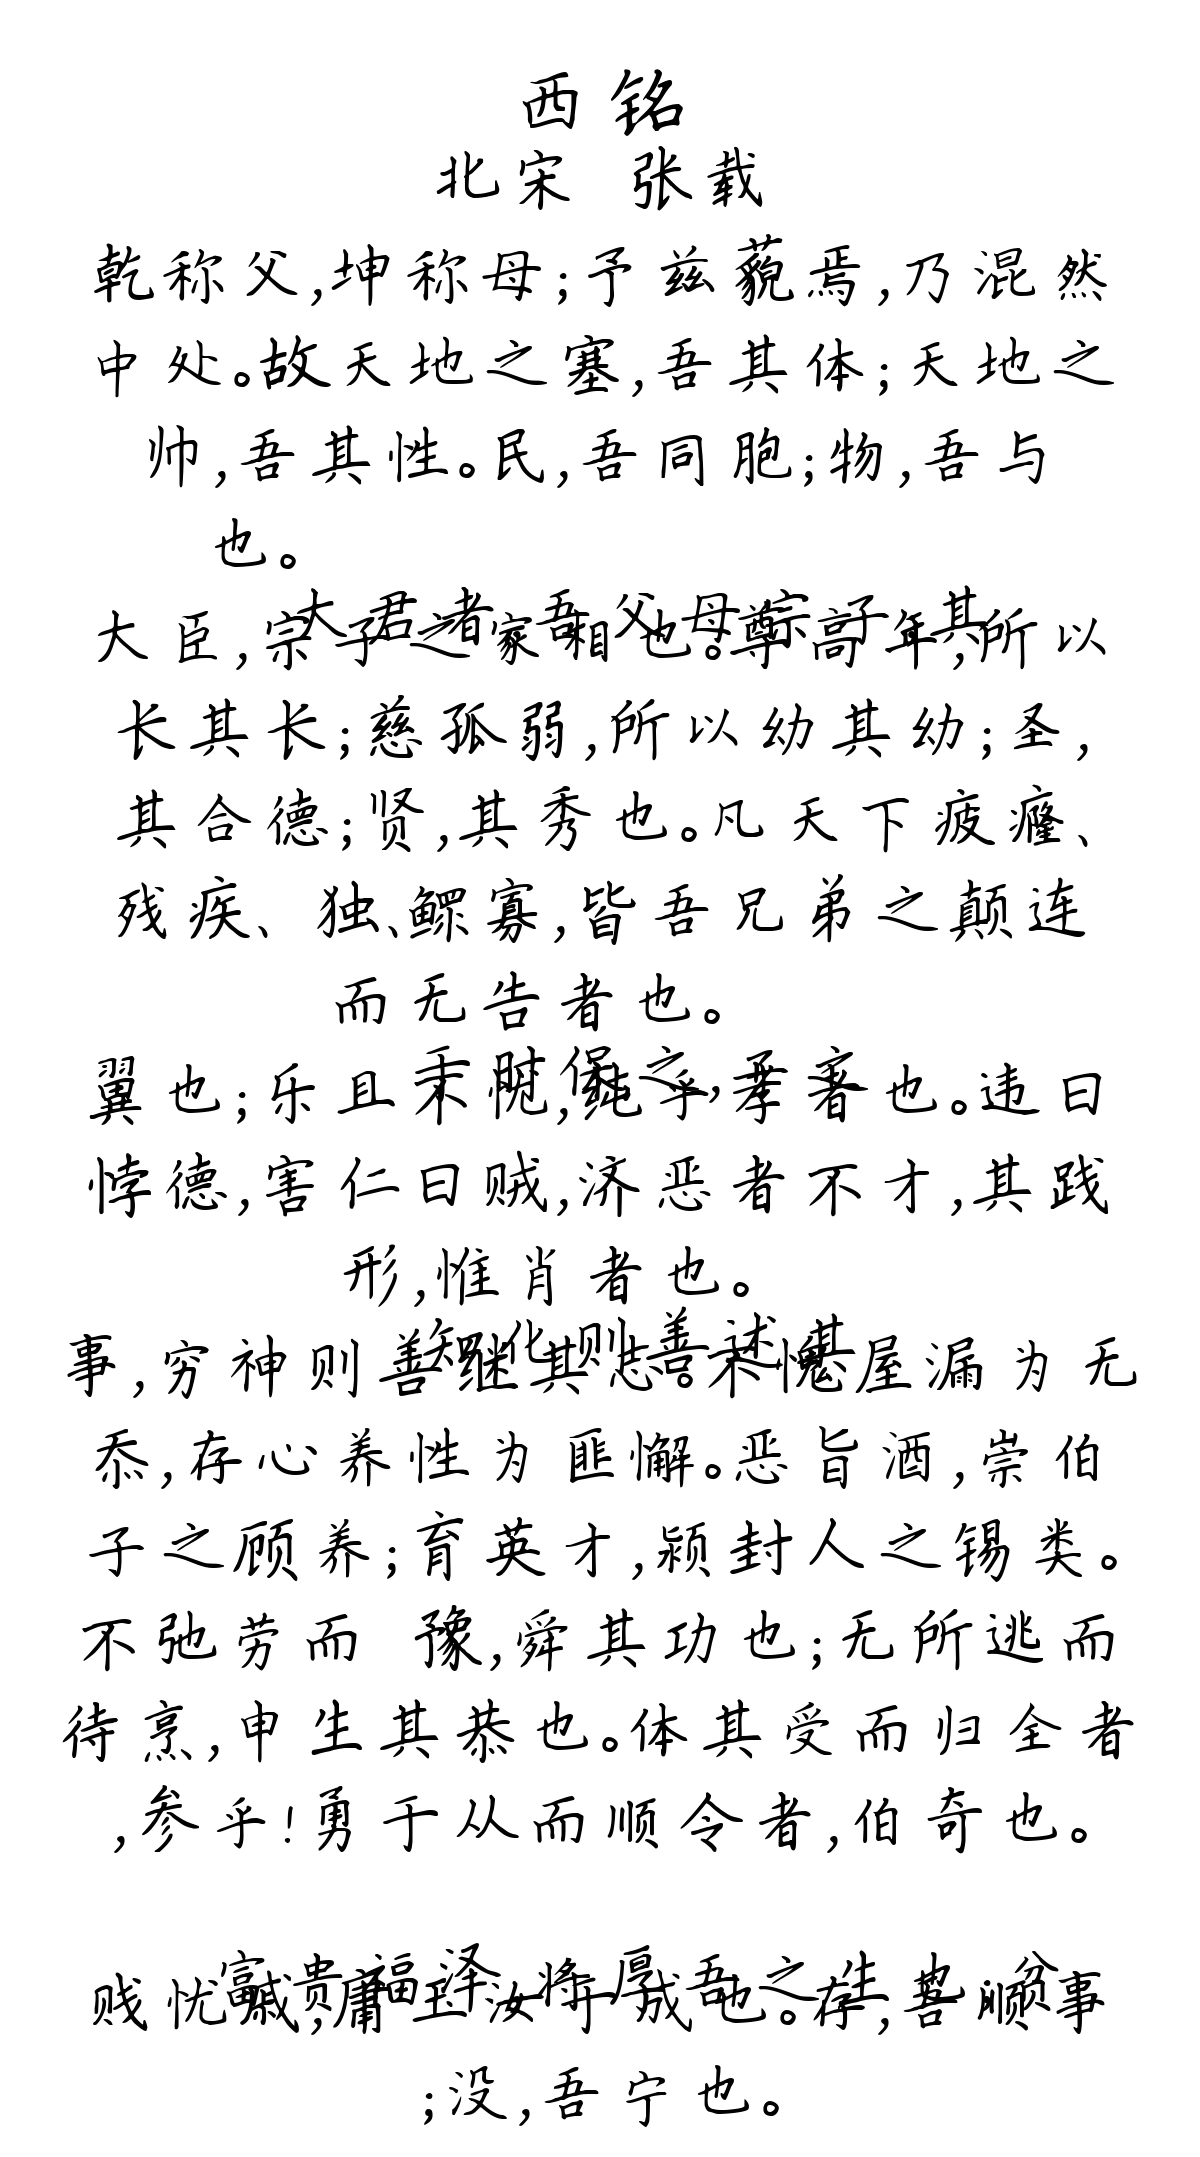 西铭
北宋 张载
乾称父,坤称母;予兹藐焉,乃混然
中处。故天地之塞,吾其体;天地之
帅,吾其性。民,吾同胞;物,吾与
也。
大君者吾父母宗子其
大臣,宗子之家相也。尊高年,所以
长其长;慈孤弱,所以幼其幼;圣,
其合德;贤,其秀也。凡天下疲癃、
残疾、 独、鳏寡,皆吾兄弟之颠连
而无告者也。
于时保之,子之
翼也;乐且不忧,纯乎孝者也。违曰
悖德,害仁曰贼,济恶者不才,其践
形,惟肖者也。
知化则善述其
事,穷神则善继其志。不愧屋漏为无
忝,存心养性为匪懈。恶旨酒,崇伯
子之顾养;育英才,颍封人之锡类。
不弛劳而 豫,舜其功也;无所逃而
待烹,申生其恭也。体其受而归全者
,参乎!勇于从而顺令者,伯奇也。
富贵福泽将厚吾之生也;贫
贱忧戚,庸玉汝于成也。存,吾顺事
;没,吾宁也。